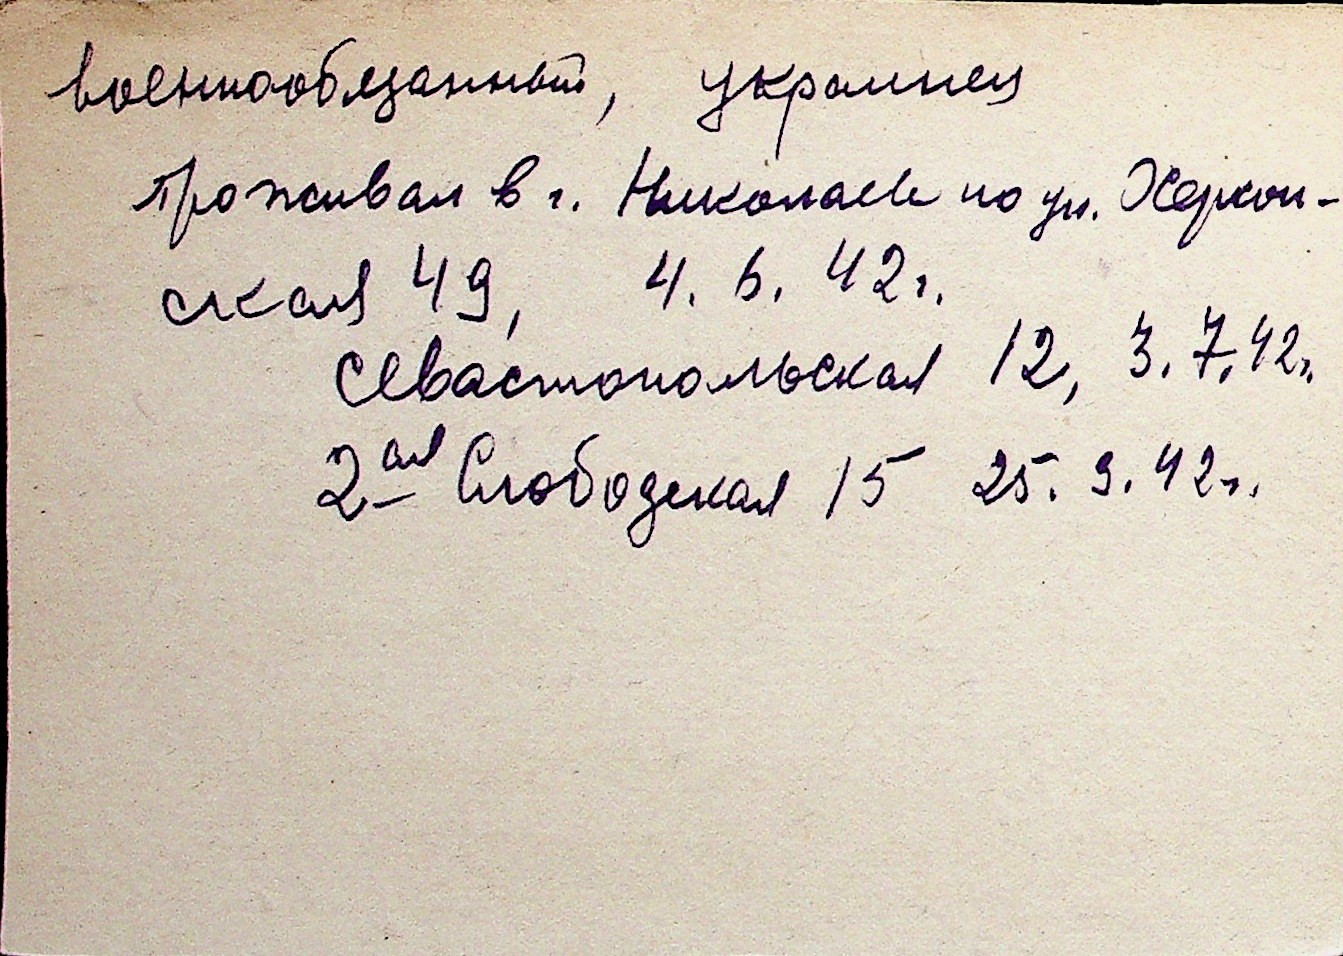 военнообязанный, украинец
проживал в г. Николаеве по ул. Херсон-
ская 49, 4. 6. 42 г.
Севастопольская 12, 3. 7. 42 г.
2ая Слободская 15 25. 9. 42 г.